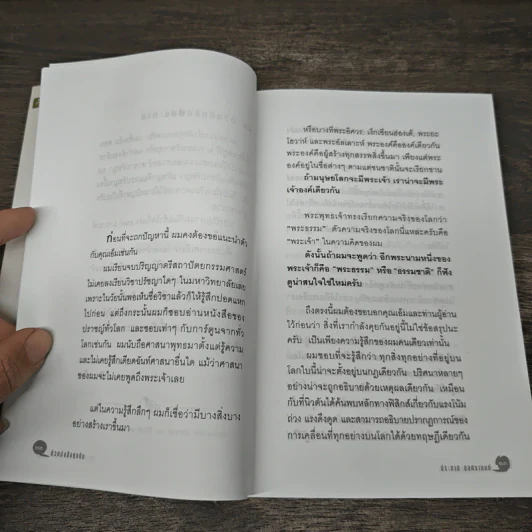 ก่อนที่จะถกปัญหานี้ ผมคงต้องขอแนะนำตัว
กับคุณเอ็มเช่นกัน
ผมเรียนจบปริญญาตรีสถาปัตยกรรมศาสตร์
ไม่เคยลงเรียนวิชาปรัชญาใดๆ ในมหาวิทยาลัยเลย
เพราะในวัยนั้นพอเห็นชื่อวิชาแล้วก็ให้รู้สึกปอดแหก
ไปก่อน แต่ถึงกระนั้นผมก็ชอบอ่านหนังสือของ
ปราชญ์ทั่วโลก และชอบเท่าๆ กับการ์ตูนจากทั่ว
โลกเช่นกัน ผมนับถือศาสนาพุทธมาตั้งแต่รู้ความ
และไม่เคยรู้สึกเดียดฉันท์ศาสนาอื่นใด แม้ว่าศาสนา
ของผมจะไม่เคยพูดถึงพระเจ้าเลย
แต่ในความรู้สึกลึกๆ ผมก็เชื่อว่ามีบางสิ่งบาง
อย่างสร้างเราขึ้นมา
หรือบางทีพระอิศวร เง็กเซียนฮ่องเต้ พระยะ
โฮวาห์ และพระอัลเลาะห์ พระองค์คือองค์เดียวกัน
พระองค์คือผู้สร้างทุกสรรพสิ่งขึ้นมา เพียงแต่พระ
องค์อยู่ในชื่อต่างๆ ตามแต่ชนชาตินั้นจะเรียกขาน
ถ้ามนุษย์โลกจะมีพระเจ้า เราน่าจะมีพระ
เจ้าองค์เดียวกัน
พระพุทธเจ้าทรงเรียกความจริงของโลกว่า
"พระธรรม" ตัวความจริงของโลกนี่แหละครับคือ
"พระเจ้า" ในความคิดของผม
ดังนั้นถ้าผมจะพูดว่า อีกพระนามหนึ่งของ
พระเจ้าก็คือ "พระธรรม" หรือ "ธรรมชาติ" ก็ฟัง
ดูน่าสนใจใช่ไหมครับ
ถึงตรงนี้ผมต้องขอบอกคุณเอ็มและท่านผู้อ่าน
ไว้ก่อนว่า สิ่งที่เรากำลังคุยกันอยู่นี้ไม่ใช่ข้อสรุปนะ
ครับ เป็นเพียงความรู้สึกของผมคนเดียวเท่านั้น
ผมชอบที่จะรู้สึกว่า ทุกสิ่งทุกอย่างที่อยู่บน
โลกใบนี้น่าจะตั้งอยู่บนกฎเดียวกัน ปริศนาหลายๆ
อย่างน่าจะถูกอธิบายด้วยเหตุผลเดียวกัน เหมือน
กับที่นิวตันได้ค้นพบหลักทางฟิสิกส์เกี่ยวกับแรงโน้ม
ถ่วง แรงดึงดูด และสามารถอธิบายปรากฏการณ์ของ
การเคลื่อนที่ทุกอย่างบนโลกได้ด้วยทฤษฎีเดียวกัน